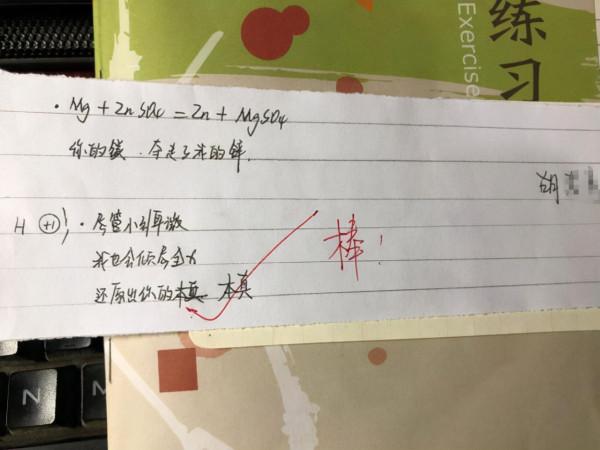 练习
Exercise
· Mg + ZnSO4 = Zn + MgSO4
你的镁.夺走了我的锌.
H +1 · 尽管小到卑微
我也会倾尽全力
还原出你的本真 本真
棒!
N